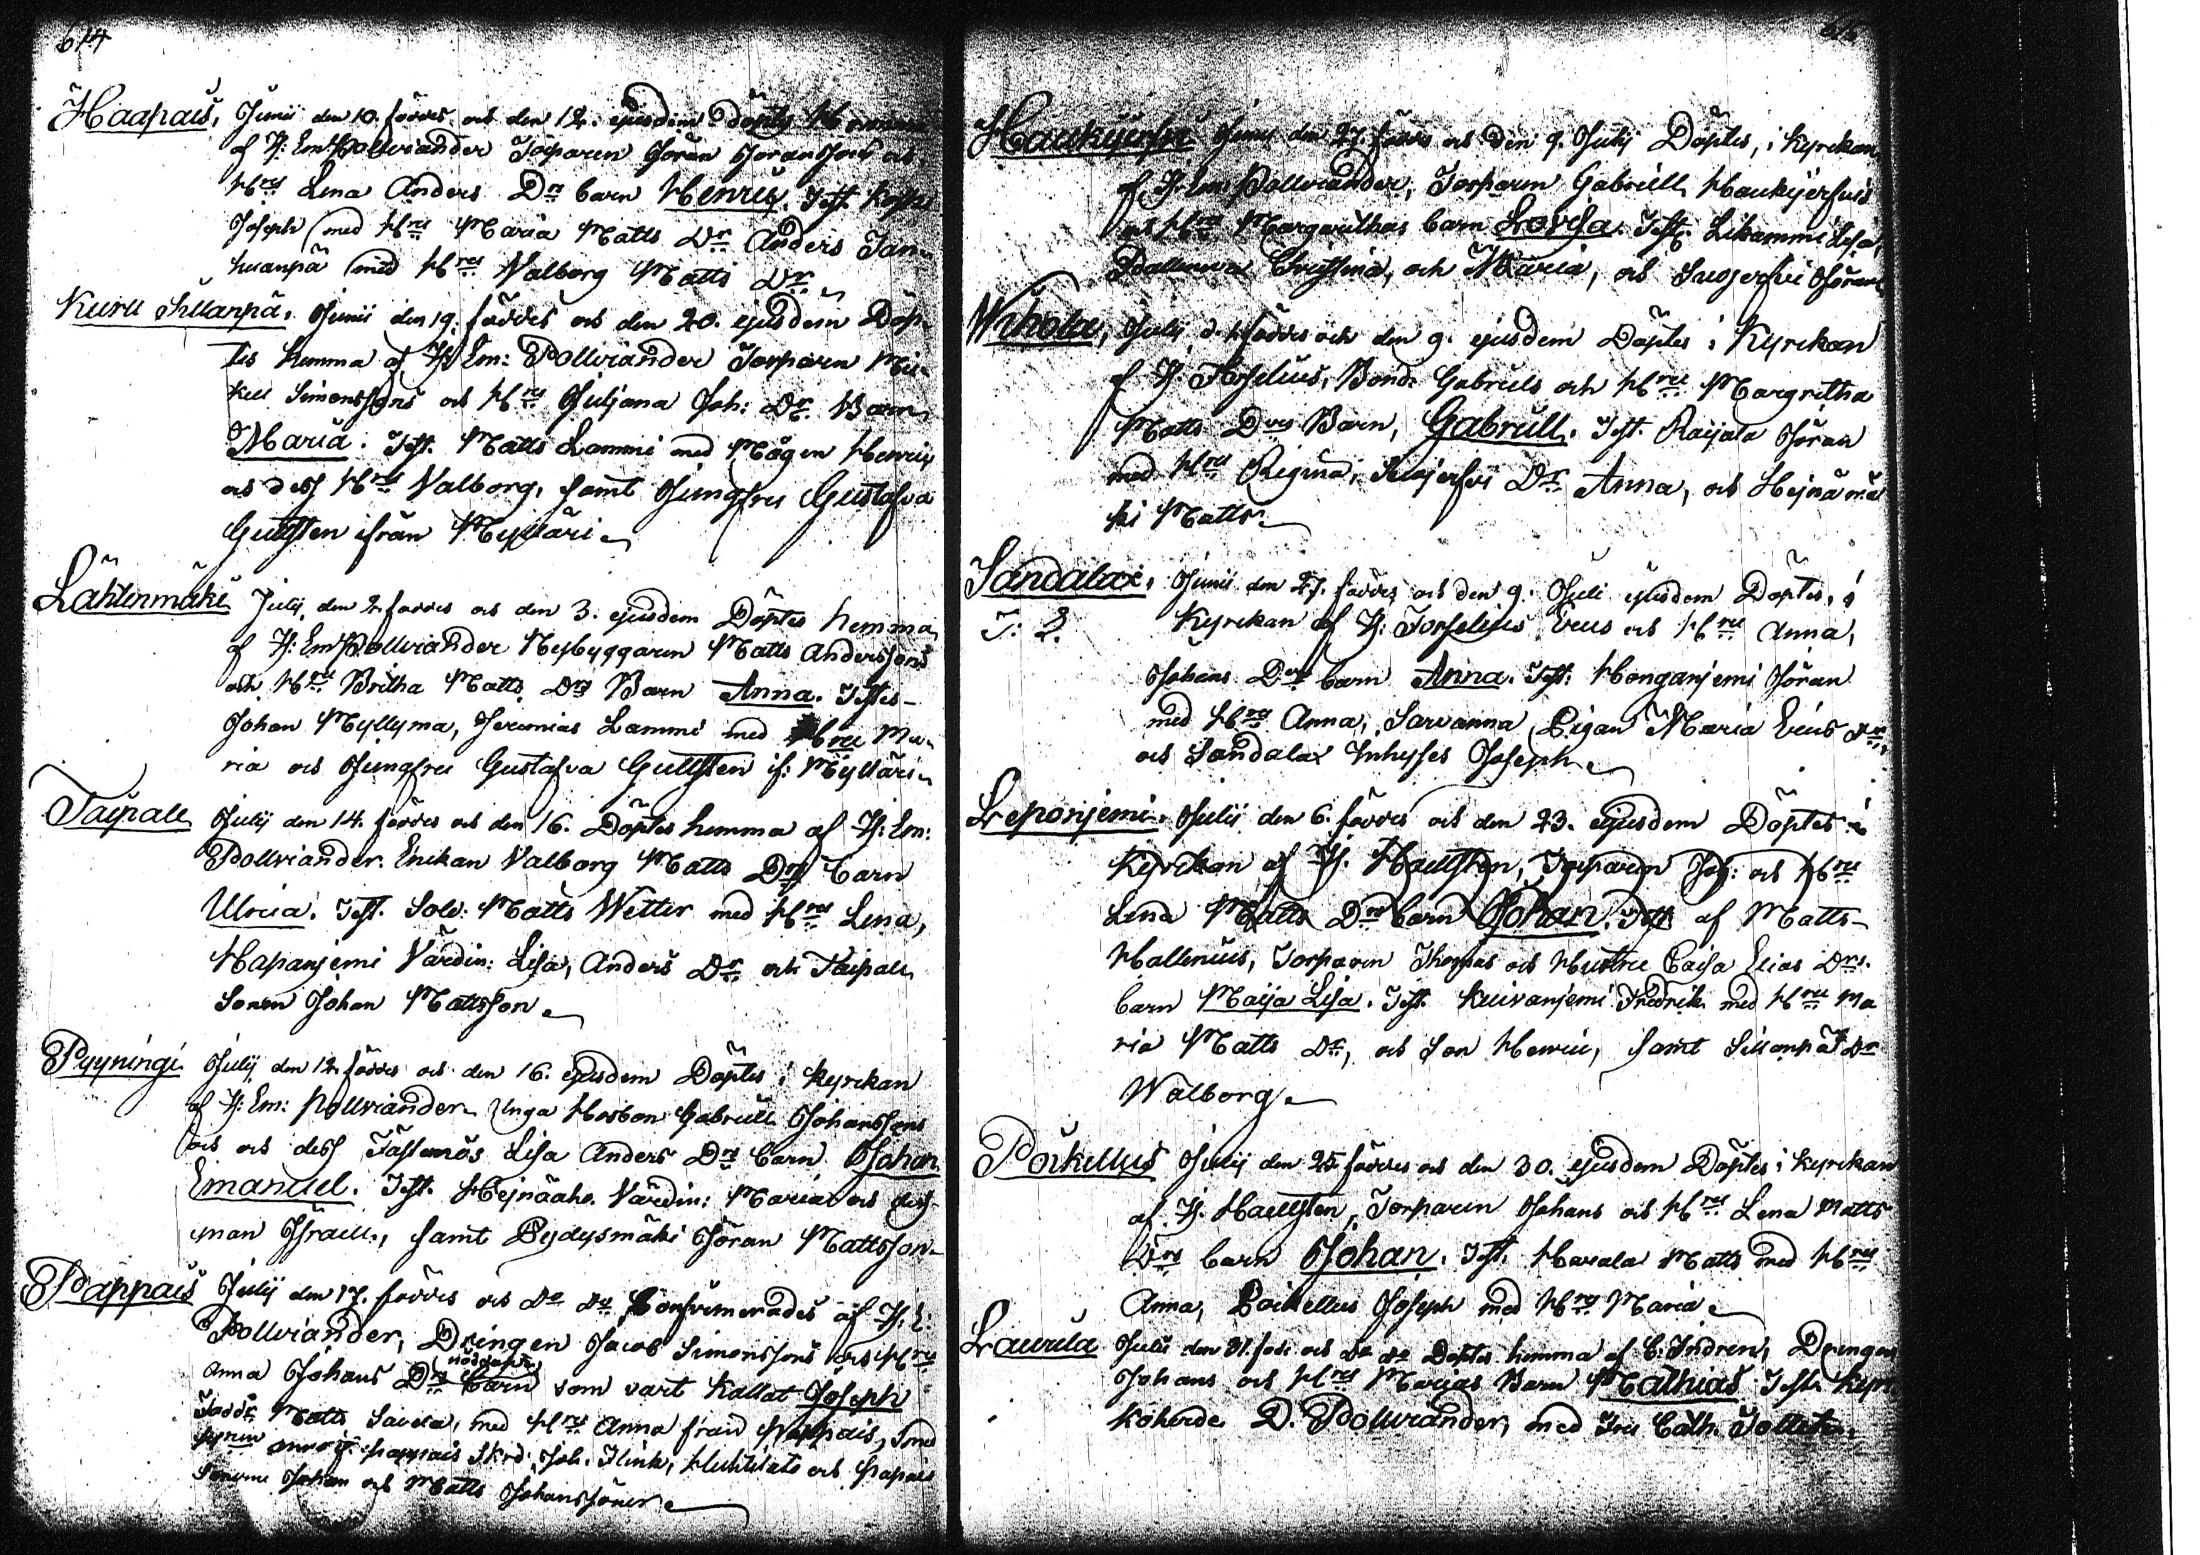 614
Haapais, Junii den 10. föddes och den 12. ejusdem döptes hemma
af H: Em: Pollviander Torparen Jöran Joransons och
H:ru Lena Anders D:r barn Henric. Test.
Joseph med H:ru Maria Matts D:r Anders Tan-
huanpä med H:ru Valborg Matts D:r
Kuru Sillanpä. Junii den 19. föddes och den 20. ejusdem Döp-
tes hemma af H: Em: Pollviander Torparen Mi-
kell Simonssons och H:ru Juljana Joh: D:r Barn
Maria. Test. Matts Lammi med Mågen Henric
och dess H:ru Valborg, samt Jungfru Gustafva
Gullsten ifrån Mylläri
Lähtinmäki Julij den 2. föddes och den 3. ejusdem Döptes hemma
af H: Em: Pollviander Nybyggaren Matts Anderssons
och H:ru Britha Matts D:rs Barn Anna. Testes
Johan Myllyma, Jeremias Lammi med H:ru Ma-
ria och Jungfru Gustafva Gullsten if: Myllari
Taipale Julij den 14. föddes och den 16. Döptes hemma af H: Em:
Pollviander. Enkan Valborg Matts D:rs barn
Ulrica. Test. Sold: Matts Wetter med H:ru Lena,
Hapanjemi Värdin: Lisa, Anders D:r och Taipale
Sonen Johan Mattsson
Pyyningi Julij den 12. föddes och den 16. ejusdem Döptes i Kyrckan
af H: Em: Pollviander Unga Gabriell Johanssons
och och dess Fästemös Lisa Anders D:rs barn Johan
Emanuel. Test. Hejnäaho Värdin: Maria och dess
man Israell, samt Pydysmäki Jöran Mattsson
Pappais Julij den 17. föddes och d:o d:o Confirmerades af H: E:
Pollviander, Drängen Jacob Simonssons och H:ru
Anna Johans D:rs nöddöpte barn som vart kallat Joseph
Fadd: Matts Savela, med H:ru Anna från Pappais,
pappais Skrd: Joh. Flink, och Papais
Sönerne Johan och Matts Johanssöner
615
Haukijerfvi Junii den 27. föddes och den 9. Julij Döptes, i Kyrckan
af H: Em: Pollviander, Torparen Gabriell Haukijerfvis
och H:ru Margarethas barn Lovisa. Test. Lisa,
Christina, och Maria, och Jöran
Wihola, Julij d. 4 föddes och den 9. ejusdem Döptes i Kyrckan
af H. Forselius, Bond: Gabriels och H:ru Margretha
Matts D:rs Barn, Gabriell. Test. Raijala Jöran
med H:ru Regina, D:r Anna, och Hejnämä
ki Matts
Sandalax. Junii den 27. föddes och den 9. Juli ejusdem Döptes, i
T: 2. Kyrckan af H: Forselius Erics och H:ru Anna,
Johans D:rs barn Anna. Test: Honganjemi Jöran
med H:ru Anna, Pigan Maria Erics D:r
och Sandalax Inhyses Joseph
Leponjemi. Julij den 6. föddes och den 23. ejusdem Döptes i
Kyrckan af H. Haellsten, Torparen Joh: och H:ru
Lena Matts D:rs barn Johan. Test af Matts
Hallenius, Torparen Thomas och Hustru Caisa Elias D:rs.
barn Maija Lisa. Test. Kuivanjemi Fredrik med H:ru Ma
ria Matts D:r, och Son Henric, samt Sillanpä D:r
Walborg
Poikellus Julij den 25. föddes och den 30. ejusdem Döptes i Kyrckan
af H. Haellsten, Torparen Johans och H:ru Lena Matts
D:rs barn Johan. Test. Harala Matts med H:ru
Anna, Poikellus Joseph med H:ru Maria
Laurila Julii den 31. föd: och d:o d:o Döptes hemma af C: Indren, Drängen
Johans och H:ru Marias Barn Mathias Test: Kyr-
koherde D. Pollviander, med Fru Cath.